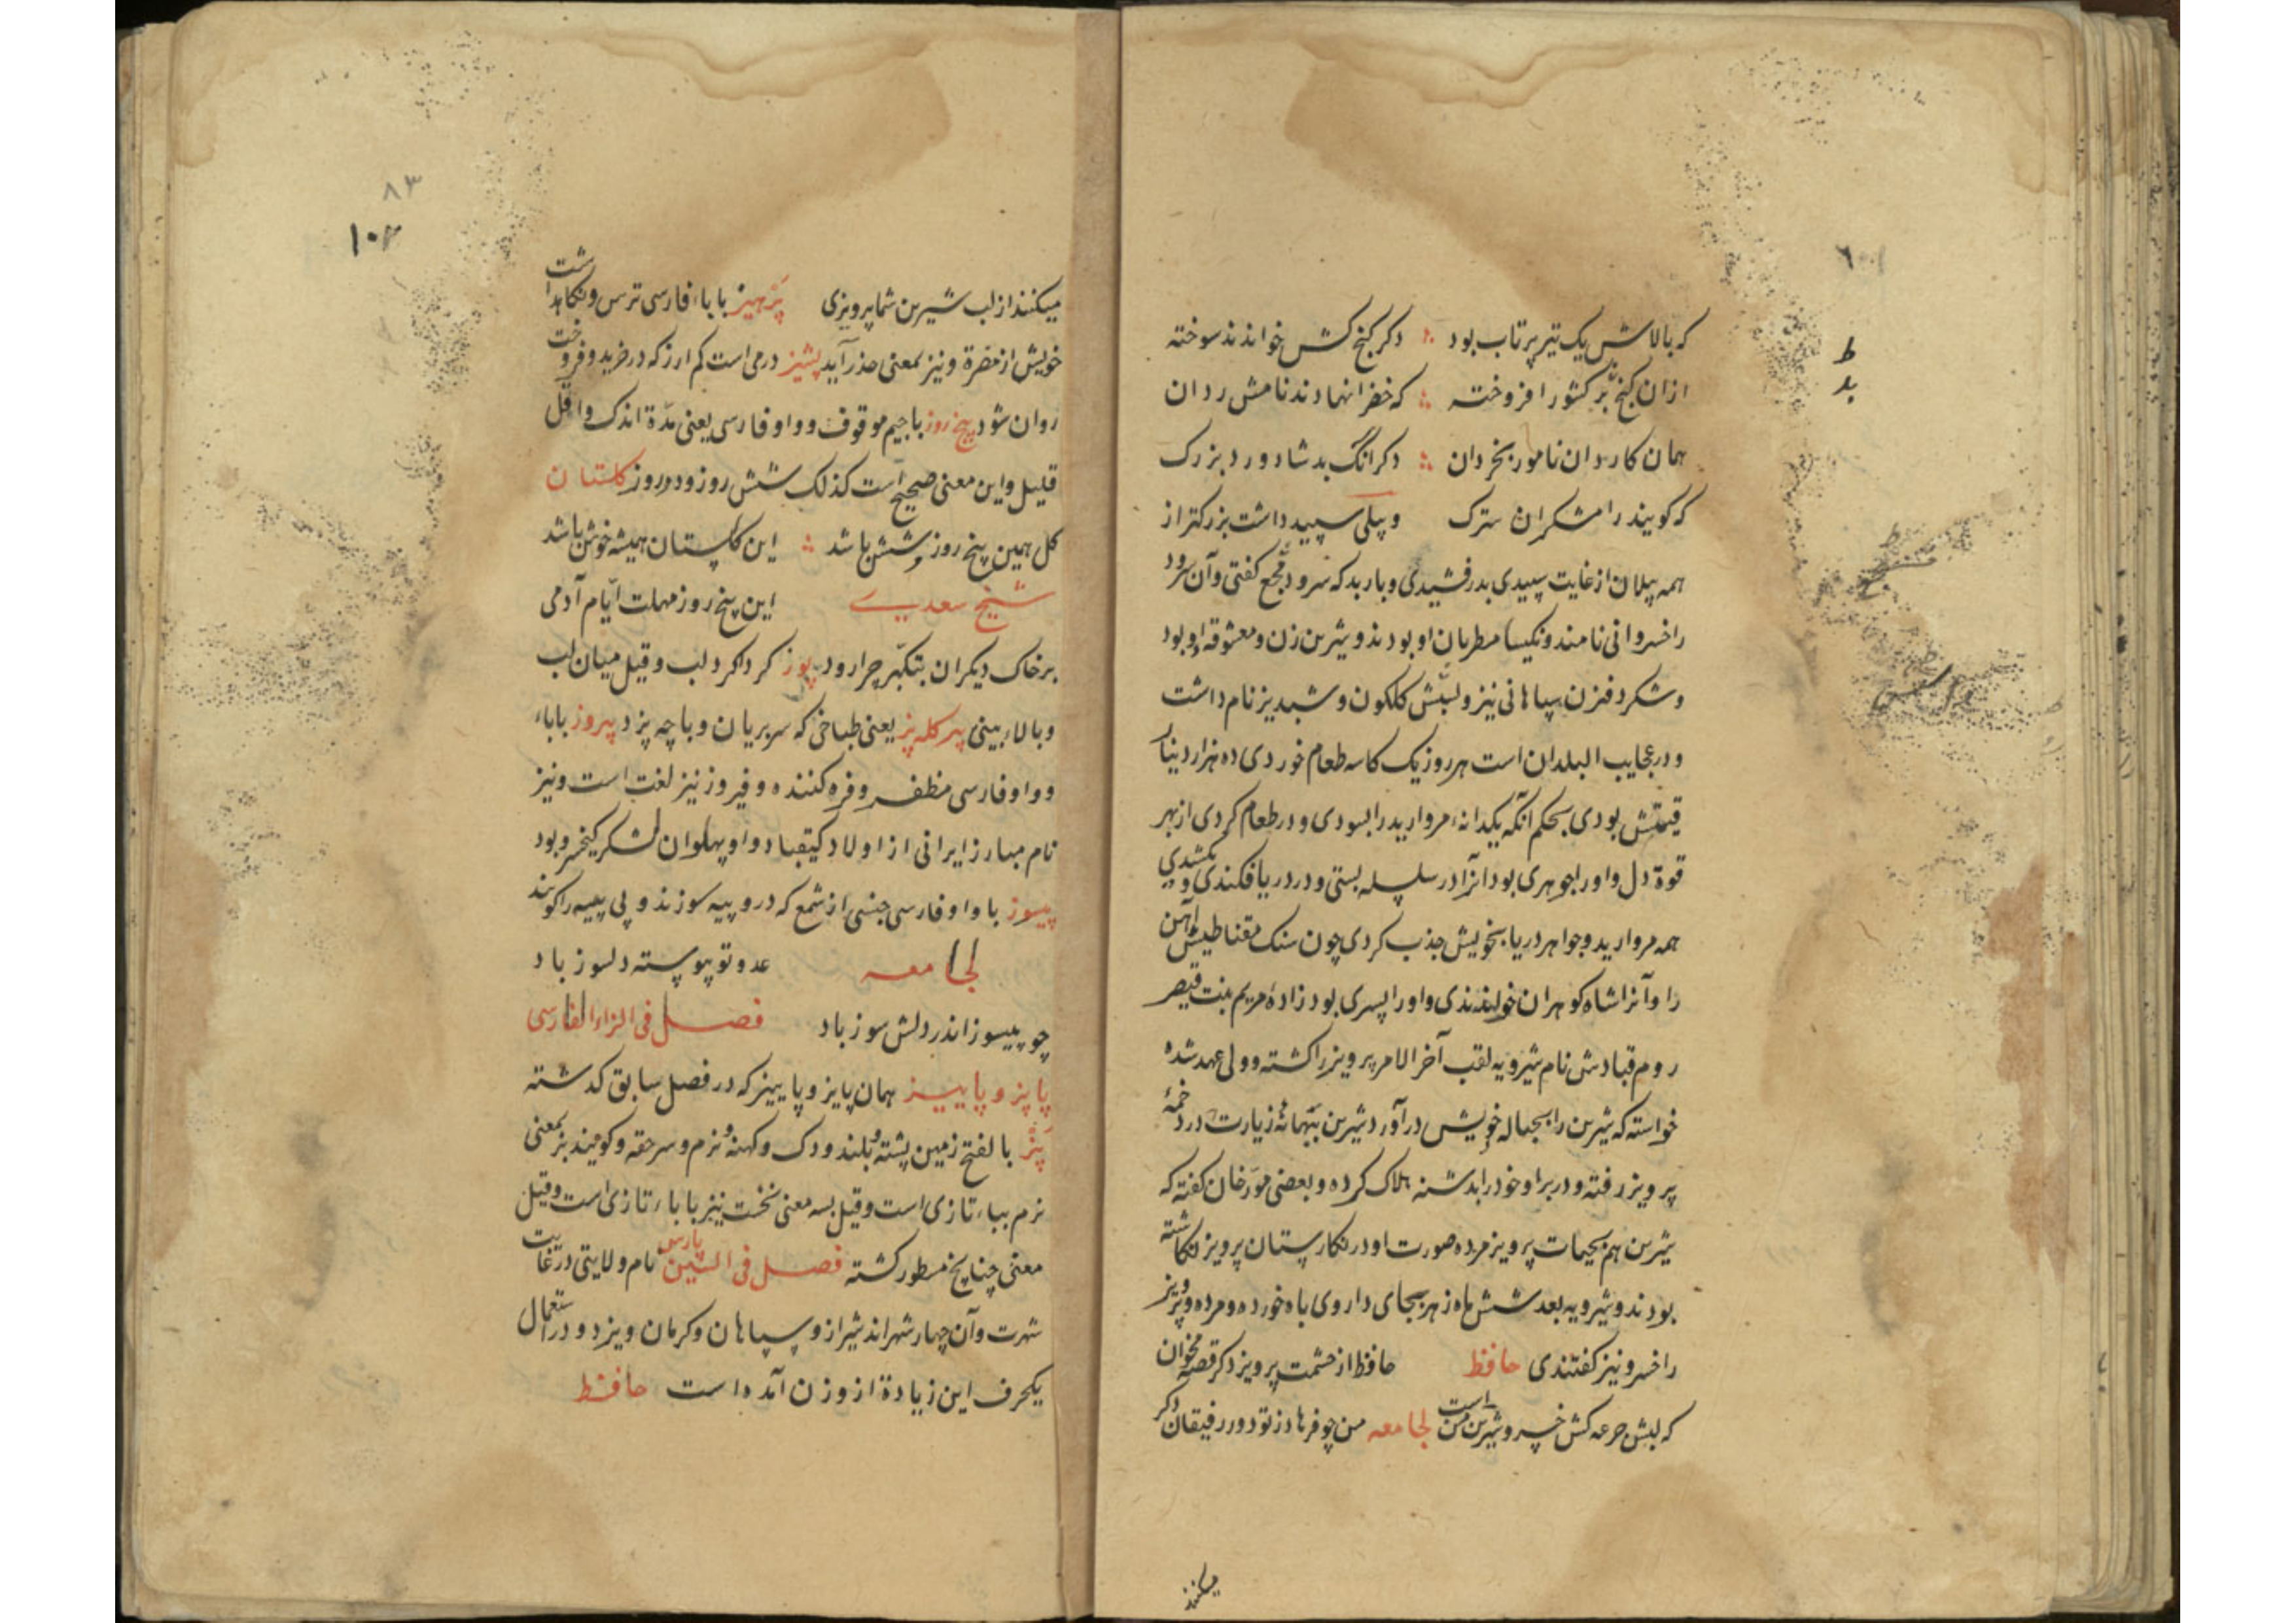 که بالاش یک تیر پرتاب بود ∴ دکر کنج کش خواندند سوخته
ازان کنج بر کشور افروخته ∴ که خضرا نهادند نامش ردان
همان کاردان نامور بخردان ∴ دکر آنک بد شادورد بزرک
که کویند رامشکران سترک و پیلی سپید داشت بزرکتر از
همه پیلان از غایت سپیدی بدرفشیدی و باربد که سرود مسجع کفتی و آن سرود
را خسروانی نامند و نکیسا مطربان او بودند و شیرین زن و معشوقه او بود
و شکر دفزن سپاهانی نیز و اسپش کلکون و شبدیز نام داشت
و در عجایب البلدان است هر روز یک کاسه طعام خوردی ده هزار دینار
قیمتش بودی بحکم آنکه یکدانه مروارید را بسودی و در طعام کردی از بهر
قوة دل و او را جوهری بود آنرا در سلسله بستی و در دریا فکندی و بکشیدی
همه مروارید و جواهر دریا بخویش جذب کردی چون سنک مقناطیس آهن
را و آنرا شاه کوهران خواندندی و او را پسری بود زادهٔ مریم بنت قیصر
روم قبادش نام شیرویه لقب آخر الامر پرویز را کشته و ولی عهد شده
خواسته که شیرین را بحباله خویش در آورد شیرین ببهانهٔ زیارت در دخمهٔ
پرویز رفته و در بر او خود را بدشنه هلاک کرده و بعضی مورخان کفته که
شیرین هم بحیات پرویز مرده صورت او در نکارستان پرویز نکاشته
بودند و شیرویه بعد شش ماه زهر بجای داروی باه خورده و مرده و پرویز
را خسرو نیز کفتندی حافظ حافظ از حشمت پرویز دکر قصه مخوان
که لبش جرعه کش خسرو شیرین منست لجامعه من چو فرهاد ز تو دور رفیقان دکر
میکنند
۸۳
۱۰۲
میکنند از لب شیرین شما پرویزی پرهیز با باء فارسی ترس و نکاهداشت
خویش از مضرة و نیز بمعنی حذر آید پشیز درمی است کم ارز که در خرید و فروخت
روان شود پنج روز با جیم موقوف و واو فارسی یعنی مدة اندک و اقل
قلیل و این معنی صحیح است کذلک شش روز و دو روز کلستان
کل همین پنج روز و شش باشد ∴ این کلستان همیشه خوش باشد
شیخ سعدی این پنج روز مهلت ایام آدمی
بر خاک دیکران بتکبر چرا رود پوز کرداکرد لب و قیل میان لب
و بالاء بینی پیر کله پز یعنی طباخی که سر بریان و باچه پزد پیروز با باء
و واو فارسی مظفر و فره کننده و فیروز نیز لغت است و نیز
نام مبارز ایرانی از اولاد کیقباد و او پهلوان لشکر کیخسرو بود
پیسوز با واو فارسی جنسی از شمع که درو پیه سوزند و پی پیه را کویند
لجامعه عدو تو پیوسته دلسوز باد
چو پیسوز اندر دلش سوز باد فصل فی الزاء الفارسی
پاپز و پاییز همان پایز و پاییز که در فصل سابق کدشته
پژ بالفتح زمین پشته و بلند و دک و کهنه و نرم و سر حقه و کویند بز بمعنی
نرم بباء تازی است و قیل بسه معنی نخست نیز با باء تازی است و قیل
معنی چنانچ مسطور کشته فصل فی السین پارس نام ولایتی در غایت
شهرت و آن چهار شهراند شیراز و سپاهان و کرمان و یزد و در استعمال
یکحرف این زیادة از وزن آمده است حافظ